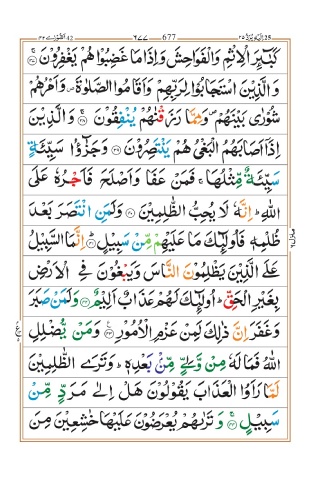 الشورٰی ٤٢ ٦٧٧ 677 الیہ یرد ٢٥
كَبٰٓئِرَ الْاِثْمِ وَالْفَوَاحِشَ وَاِذَا مَا غَضِبُوْا هُمْ يَغْفِرُوْنَ ۚ‏ ﴿۳۷﴾
وَالَّذِيْنَ اسْتَجَابُوْا لِرَبِّهِمْ وَاَقَامُوا الصَّلٰوةَ ۪ وَاَمْرُهُمْ
شُوْرٰى بَيْنَهُمْ ۪ وَمِمَّا رَزَقْنٰهُمْ يُنْفِقُوْنَ ۚ‏ ﴿۳۸﴾ وَالَّذِيْنَ
اِذَاۤ اَصَابَهُمُ الْبَغْىُ هُمْ يَنْتَصِرُوْنَ ﴿۳۹﴾ وَجَزٰٓؤُا سَيِّئَةٍ
سَيِّئَةٌ مِّثْلُهَا ۚ فَمَنْ عَفَا وَاَصْلَحَ فَاَجْرُهٗ عَلَى
اللّٰهِ ؕ اِنَّهٗ لَا يُحِبُّ الظّٰلِمِيْنَ ﴿۴۰﴾ وَلَمَنِ انْتَصَرَ بَعْدَ
ظُلْمِهٖ فَاُولٰٓئِكَ مَا عَلَيْهِمْ مِّنْ سَبِيْلٍ ؕ‏ ﴿۴۱﴾ اِنَّمَا السَّبِيْلُ
عَلَى الَّذِيْنَ يَظْلِمُوْنَ النَّاسَ وَيَبْغُوْنَ فِى الْاَرْضِ
بِغَيْرِ الْحَقِّ ؕ اُولٰٓئِكَ لَهُمْ عَذَابٌ اَلِيْمٌ ﴿۴۲﴾ وَلَمَنْ صَبَرَ
وَغَفَرَ اِنَّ ذٰلِكَ لَمِنْ عَزْمِ الْاُمُوْرِ ﴿۴۳﴾ وَمَنْ يُّضْلِلِ
اللّٰهُ فَمَا لَهٗ مِنْ وَّلِىٍّ مِّنْۢ بَعْدِهٖ ؕ وَتَرَى الظّٰلِمِيْنَ
لَمَّا رَاَوُا الْعَذَابَ يَقُوْلُوْنَ هَلْ اِلٰى مَرَدٍّ مِّنْ
سَبِيْلٍ ۚ‏ ﴿۴۴﴾ وَتَرٰٮهُمْ يُعْرَضُوْنَ عَلَيْهَا خٰشِعِيْنَ مِنَ